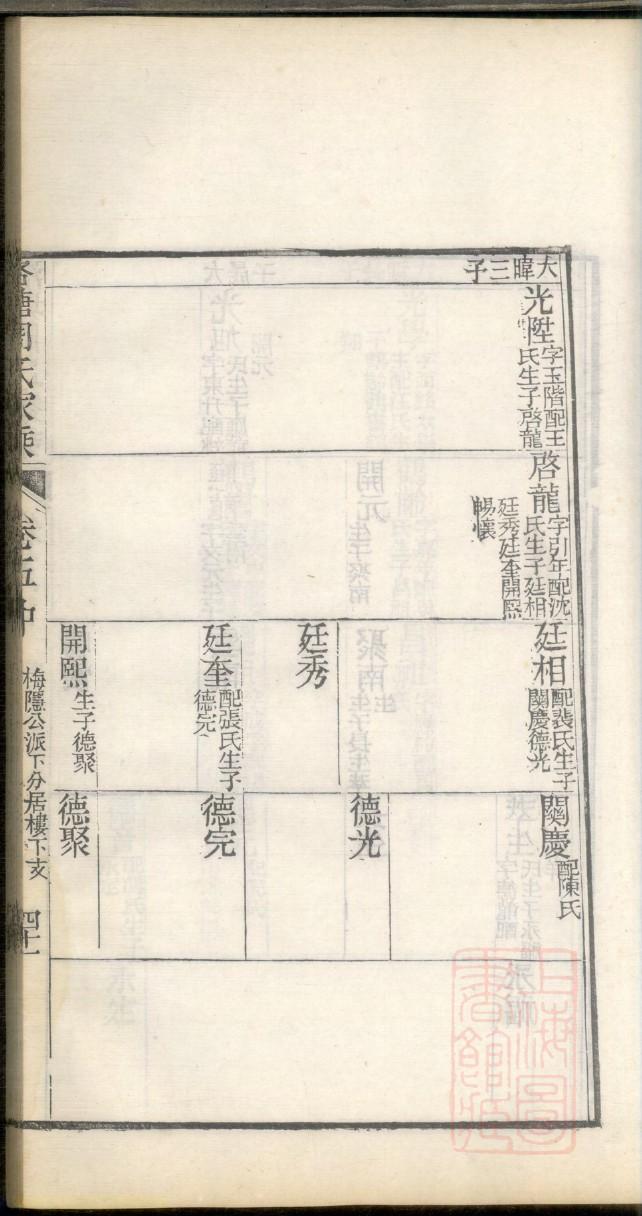 大暐三子
光陞 字玉階配王
氏生子啓龍
啓龍 字引年配沈
氏生子廷相
廷秀廷奎開熙
暢懷
廷相 配裴氏生子
關慶德光
廷秀
廷奎 配張氏生子
德完
開熙 生子德聚
關慶 配陳氏
德光
德完
德聚
氏家乘
卷五中
梅隱公派下分居樓下支
四十一
上海圖書館藏